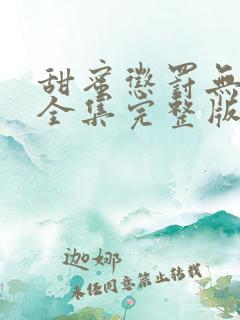 甜蜜懲罰無
全集完整版
迦娜
未经同意禁止转载